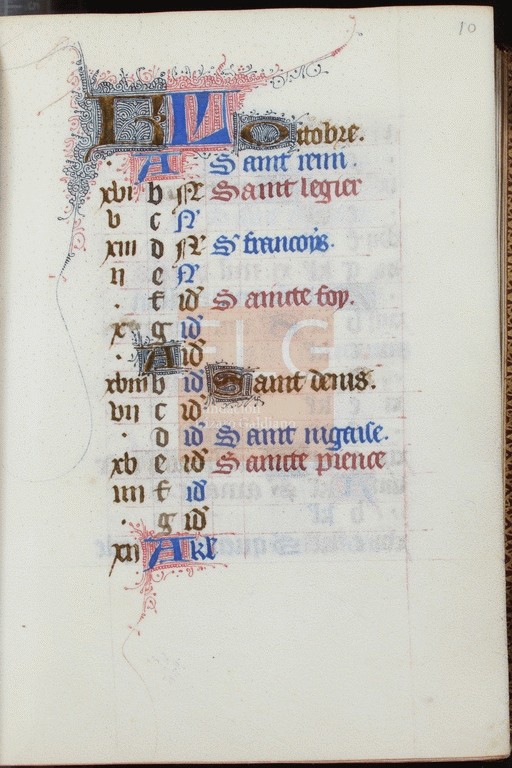 10
KL Octobre.
. A Saint remi.
xvi b N Saint legier
v c N
xiii d N S' francoys.
ii e N
. f id Saincte foy.
x g id
A id
xviii b id Saint denis.
vii c id
. d id Saint nigaise.
xv e id Saincte pience
iiii f id
. g id
xii A kl